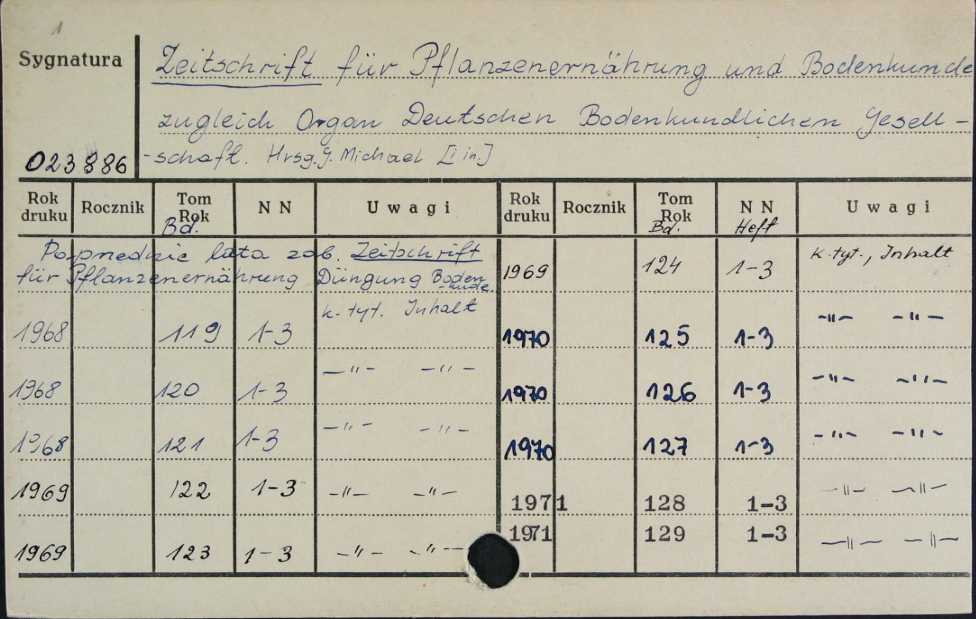 1
Sygnatura
Zeitschrift für Pflanzenernährung und Bodenkunde
zugleich Organ Deutschen Bodenkundlichen Gesell-
023886 -schaft. Hrsg. G. Michael [i in.]
Rok druku Rocznik Tom Rok Bd. NN Uwagi Rok druku Rocznik Tom Rok Bd. NN Heft Uwagi
Poprzednie lata zob. Zeitschrift
für Pflanzenernährung Düngung Boden-
kunde.
1968 119 1-3 k. tyt. Inhalt
1968 120 1-3 —"— —"—
1968 121 1-3 —"— —"—
1969 122 1-3 —"— —"—
1969 123 1-3 —"— —"—
1969 124 1-3 k. tyt., Inhalt
1970 125 1-3 —"— —"—
1970 126 1-3 —"— —"—
1970 127 1-3 —"— —"—
1971 128 1-3 —"— —"—
1971 129 1-3 —"— —"—